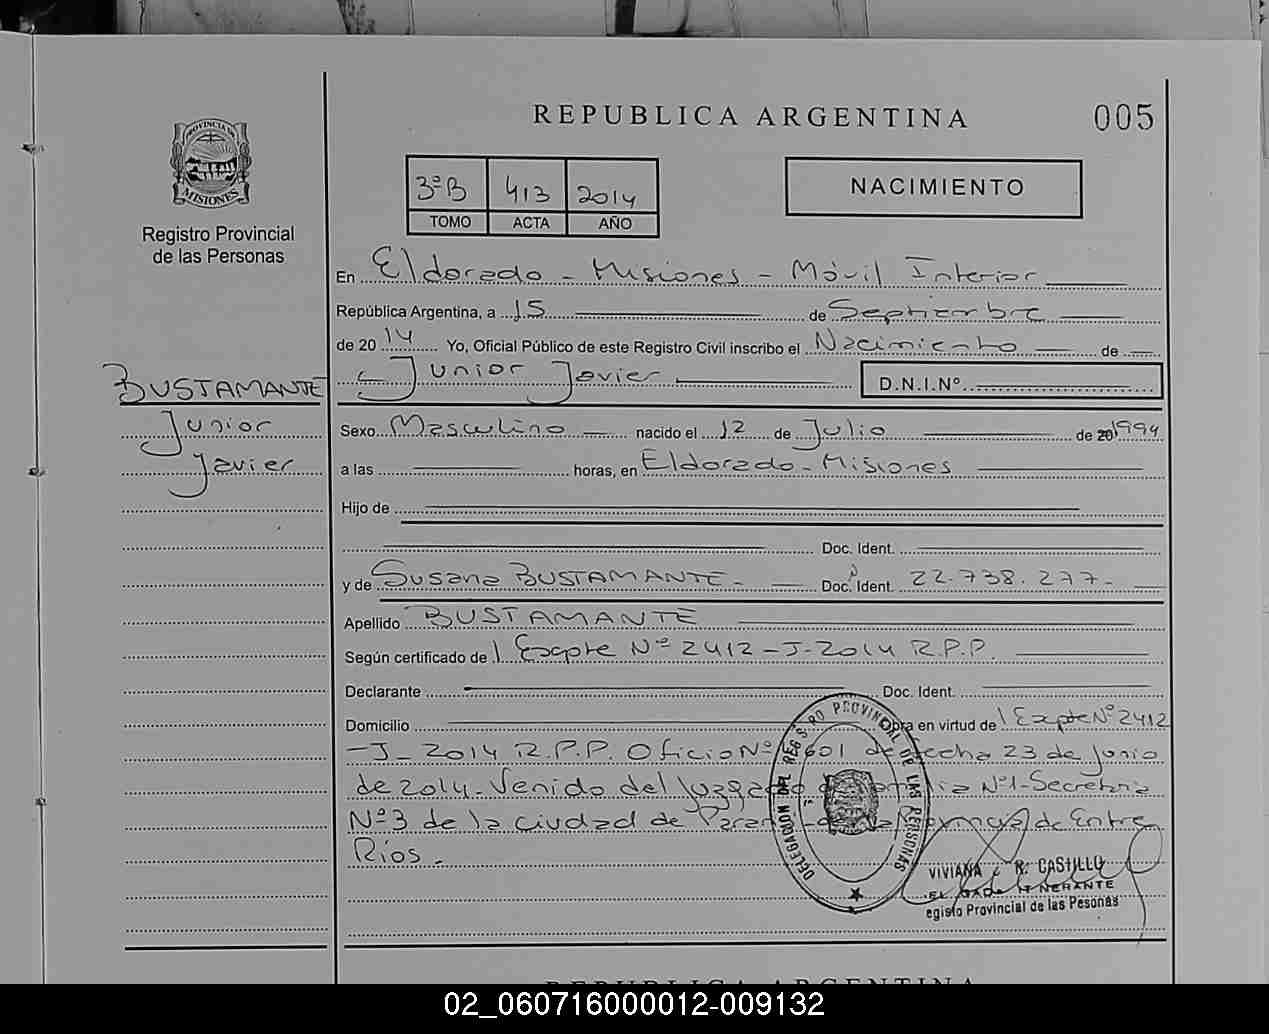 REPUBLICA ARGENTINA
005
PROVINCIA DE
MISIONES
Registro Provincial
de las Personas
3ºB 413 2014
TOMO ACTA AÑO
NACIMIENTO
En Eldorado - Misiones - Móvil Interior
República Argentina, a 15 de Septiembre
de 2014 Yo, Oficial Público de este Registro Civil inscribo el Nacimiento de
Junior Javier D.N.I.Nº
BUSTAMANTE
Junior
Javier
Sexo Masculino nacido el 12 de Julio de 20 1994
a las horas, en Eldorado - Misiones
Hijo de
Doc. Ident.
y de Susana BUSTAMANTE - Doc. Ident. 22.738.277-
Apellido BUSTAMANTE
Según certificado de Expte Nº 2412 - J - 2014 R.P.P.
Declarante Doc. Ident.
Domicilio Obra en virtud de Expte Nº 2412
- J - 2014 R.P.P. Oficio Nº 601 de fecha 23 de Junio
de 2014 - Venido del Juzgado de Familia Nº1 - Secretaria
Nº3 de la ciudad de Paraná de la Provincia de Entre
Ríos.
DELEGACION DEL REGISTRO PROVINCIAL DE LAS PERSONAS
VIVIANA R. CASTILLO
ITINERANTE
Provincial de las Pesonas
REPUBLICA ARGENTINA
02_060716000012-009132